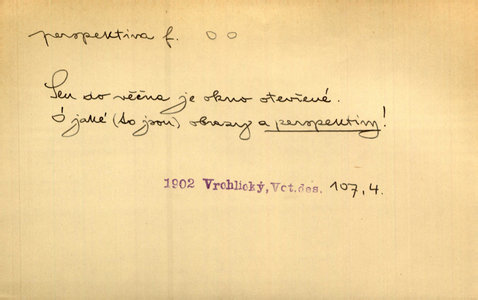 perspektiva f. 00
Sen do věčna je okno otevřené.
Ó jaké (to jsou) obrazy a perspektivy!
1902 Vrchlický, Vct.des. 107,4.